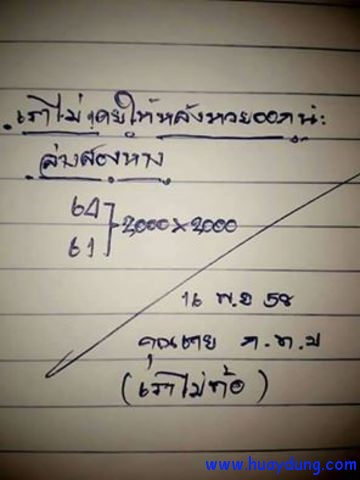 เราไม่เคยให้หลังหวยออกน่ะ
ล่างสองหาง
64
61
2000x2000
16 พ.ย 58
คุณชาย ภ.ท.ม
(เราไม่ท้อ)
www.huaydung.com